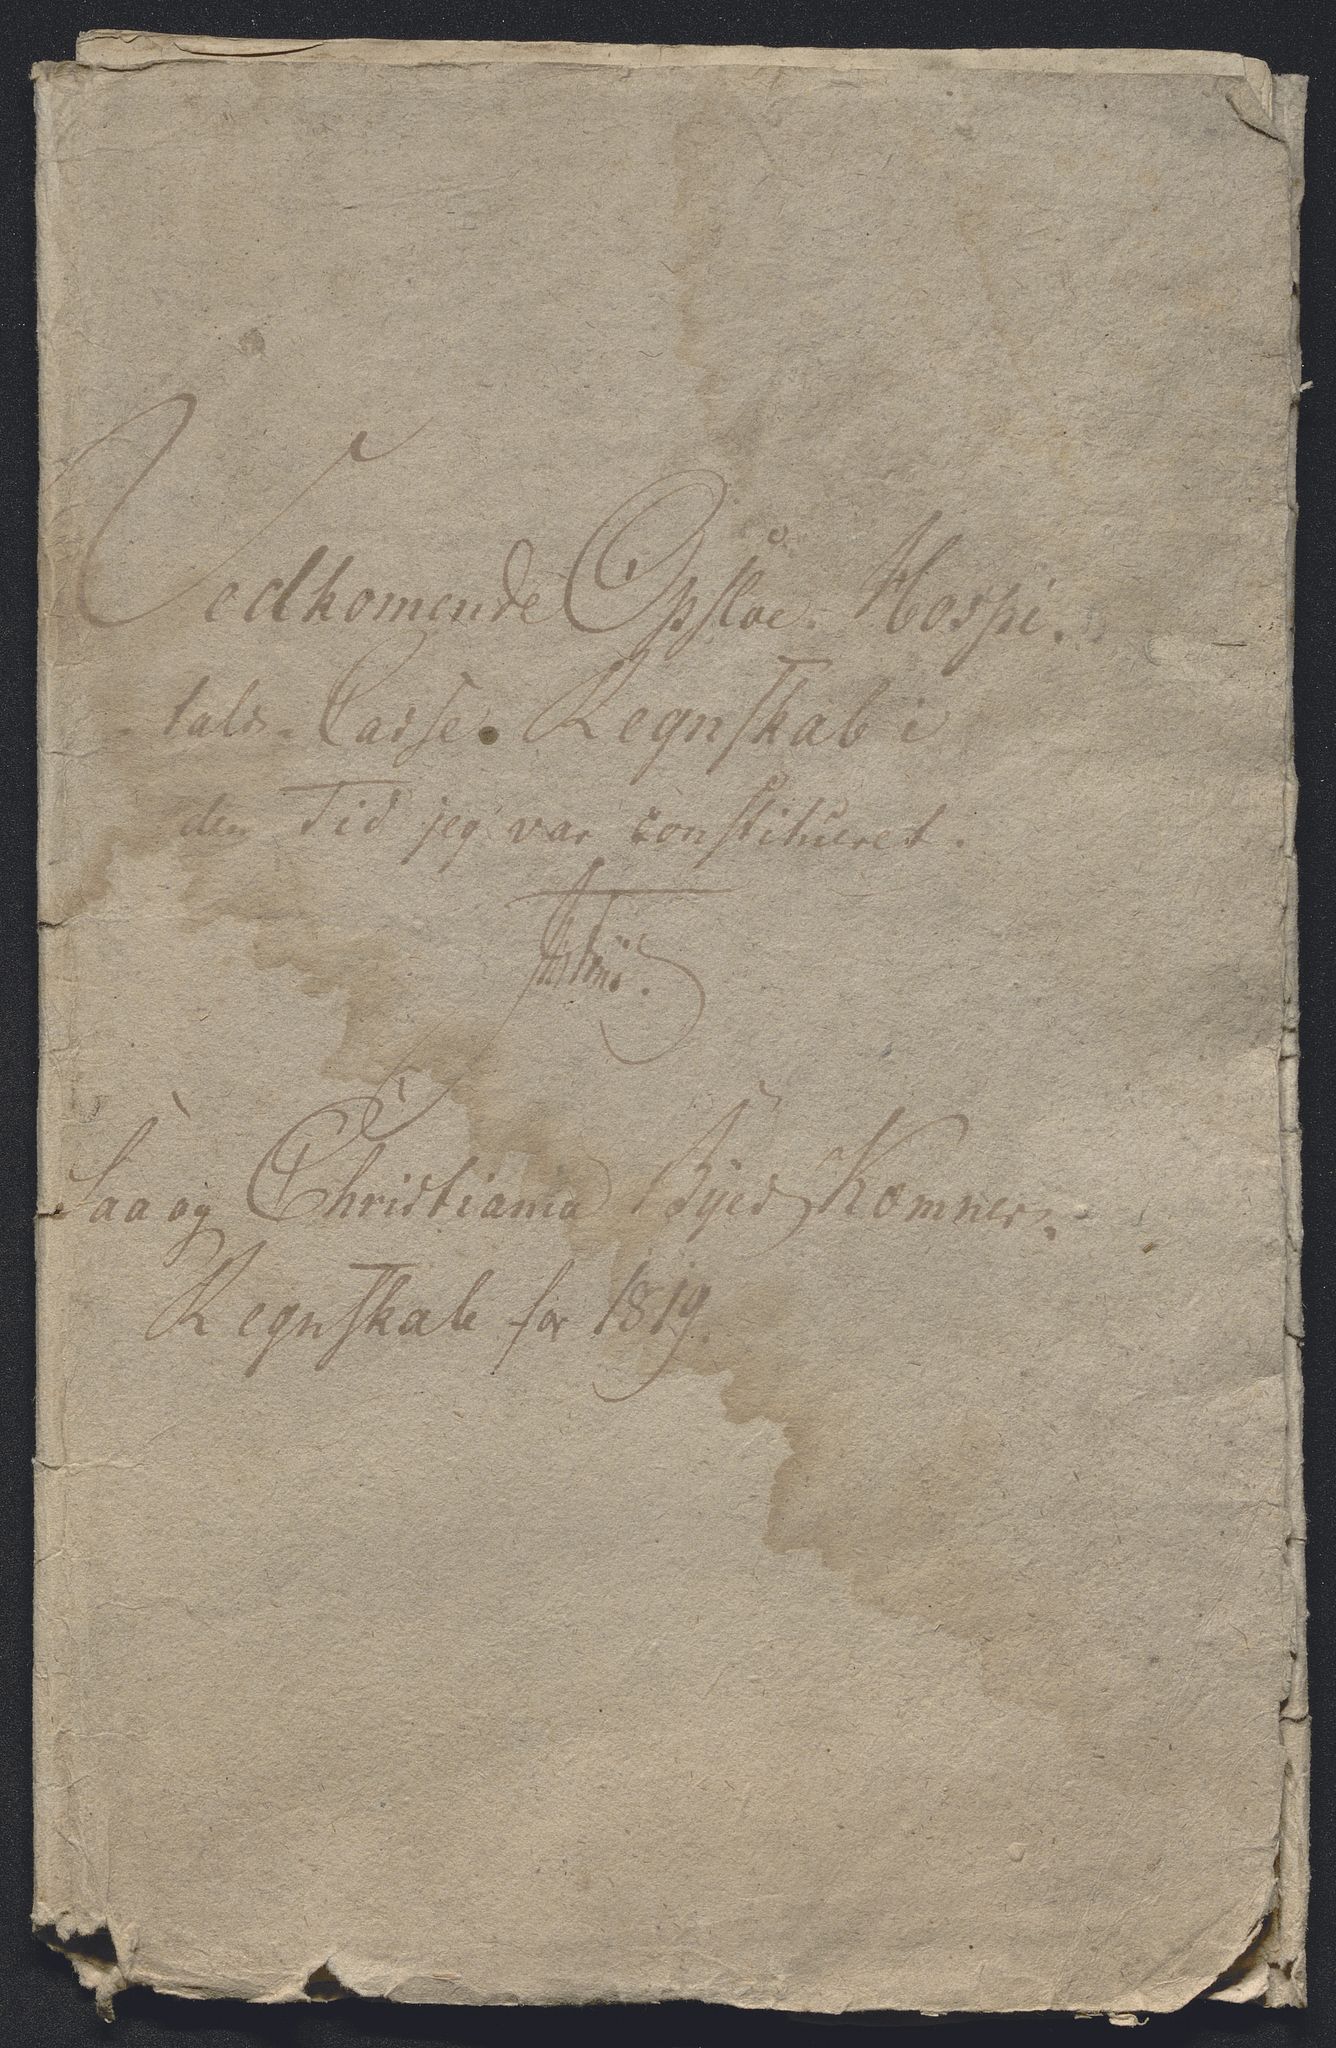 Vedkomende Opsloe Hospi-
tals-Casse-Regnskab i
den Tid jeg var constitueret.
Saa og Christiania Byes Kæmner-
Regnskab for 1819.